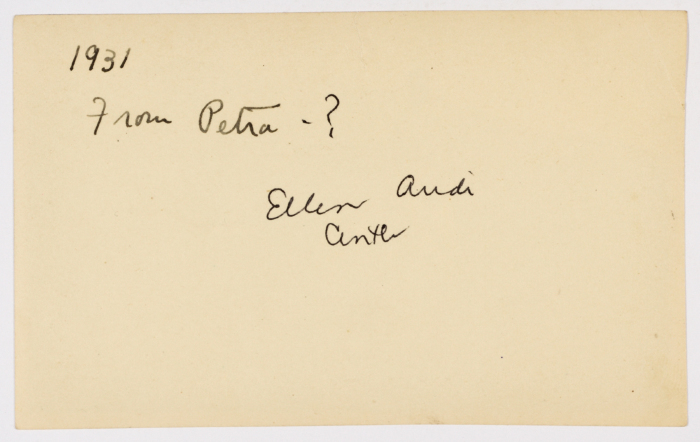 1931
From Petra - ?
Ellen Audi
Center